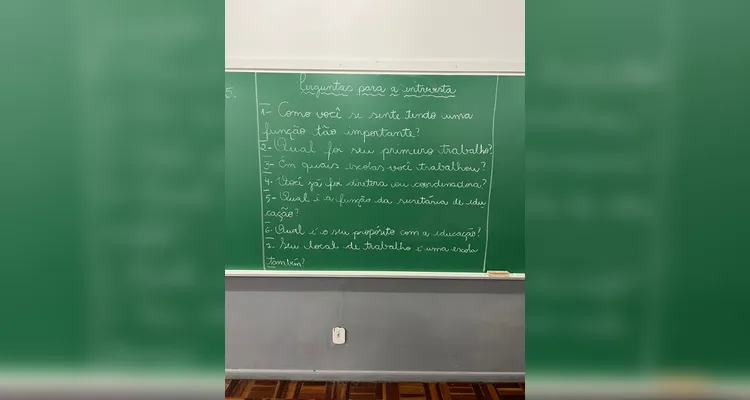 Perguntas para a entrevista
5.
1- Como você se sente tendo uma
função tão importante?
2- Qual foi seu primeiro trabalho?
3- Em quais escolas você trabalhou?
4- Você já foi diretora ou coordenadora?
5- Qual é a função da secretária de edu
cação?
6- Qual é o seu propósito com a educação?
7- Seu local de trabalho é uma escola
também?